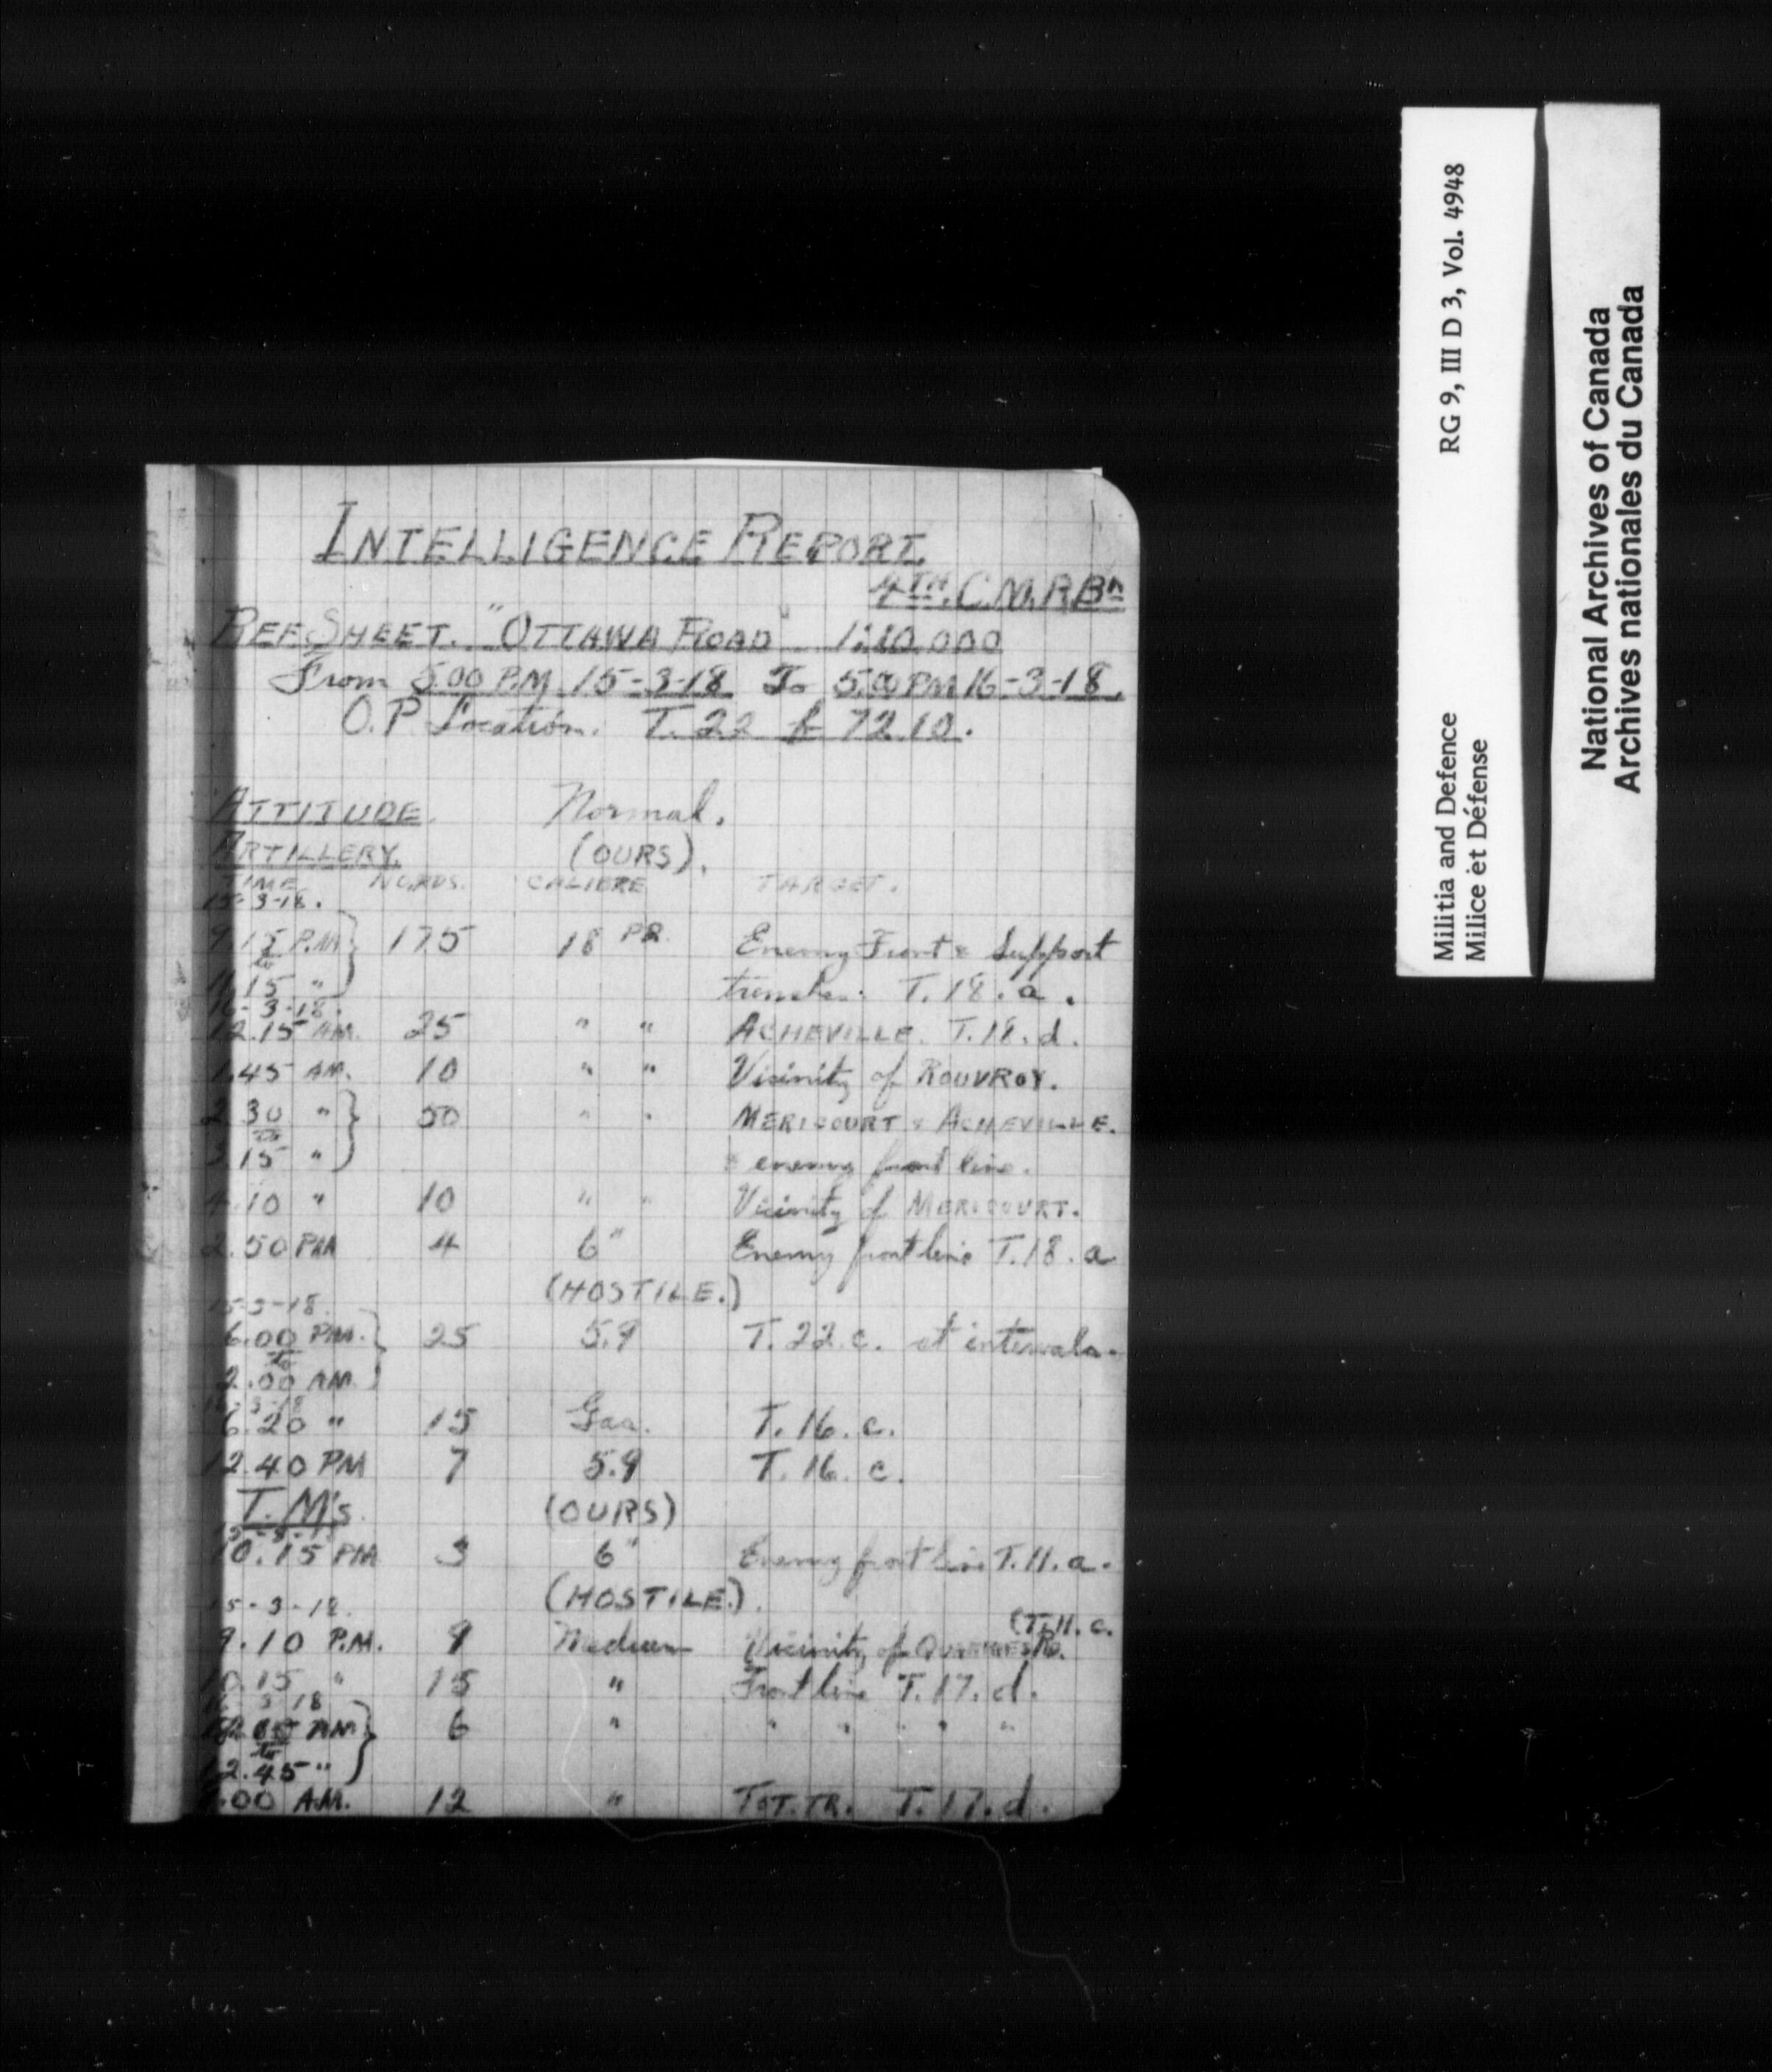 INTELLIGENCE REPORT.
4TH. C.M.R. Bn
REF. SHEET. "OTTAWA ROAD" 1:10,000
From 5.00 P.M. 15-3-18 To 5.00 PM 16-3-18.
O.P. Location. T. 22 b 72.10.
ATTITUDE. Normal.
ARTILLERY. (OURS).
TIME NO.RDS. CALIBRE TARGET.
15-3-18.
9.15 P.M. 175 18 PR. Enemy Front & Support
to
11.15 " trenches. T. 18. a.
16-3-18.
12.15 AM. 25 " " ACHEVILLE. T. 18. d.
1.45 AM. 10 " " Vicinity of ROUVROY.
2.30 " 50 " " MERICOURT & ACHEVILLE.
to
3.15 " & enemy front line.
4.10 " 10 " " Vicinity of MERICOURT.
2.50 PM 4 6" Enemy front line T. 18. a
(HOSTILE.)
15-3-18.
6.00 PM. 25 5.9 T. 22. c. at intervals.
to
2.00 AM.
16-3-18
6.20 " 15 Gas. T. 16. c.
12.40 PM 7 5.9 T. 16. c.
T. M's. (OURS)
15-3-18
10.15 PM 3 6" Enemy front line T. 11. a.
(HOSTILE.).
15-3-18.
(T. 11. c.
9.10 P.M. 9 Medium Vicinity of RD.
10.15 " 15 " Front line T. 17. d.
16-3-18
AM 6 " " " " " "
to
12.45 "
.00 A.M. 12 " TOT. TR. T. 17. d.
RG 9, III D 3, Vol. 4948
Militia and Defence
Milice et Défense
National Archives of Canada
Archives nationales du Canada